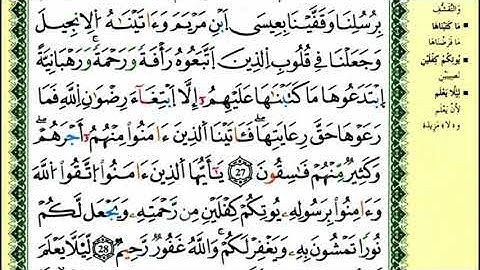 بِرُسُلِنَا وَقَفَّيْنَا بِعِيسَى ابْنِ مَرْيَمَ وَءَاتَيْنَٰهُ الْإِنجِيلَ
وَجَعَلْنَا فِى قُلُوبِ الَّذِينَ اتَّبَعُوهُ رَأْفَةً وَرَحْمَةً وَرَهْبَانِيَّةً
ابْتَدَعُوهَا مَا كَتَبْنَٰهَا عَلَيْهِمُۥٓ إِلَّا ابْتِغَآءَ رِضْوَٰنِ اللَّهِ فَمَا
رَعَوْهَا حَقَّ رِعَايَتِهَا فَـَٔاتَيْنَا الَّذِينَ ءَامَنُوا مِنْهُمُۥٓ أَجْرَهُمْ
وَكَثِيرٌ مِّنْهُمْ فَٰسِقُونَ 27 يَٰٓأَيُّهَا الَّذِينَ ءَامَنُوا اتَّقُوا اللَّهَ
وَءَامِنُوا بِرَسُولِهِۦ يُؤْتِكُمْ كِفْلَيْنِ مِن رَّحْمَتِهِۦ وَيَجْعَل لَّكُمْ
نُورًا تَمْشُونَ بِهِۦ وَيَغْفِرْ لَكُمْ وَاللَّهُ غَفُورٌ رَّحِيمٌ 28 لِّيَلَّا يَعْلَمَ
وَالتَّقَشُّف
مَا كَتَبْنَاهَا
مَا فَرَضْنَاهَا
يُوتِكُمْ كِفْلَيْنِ
نَصِيبَيْنِ
لِيَلَّا يَعْلَمَ
لِأَنْ يَعْلَمَ
و«لا» مَزِيدَة